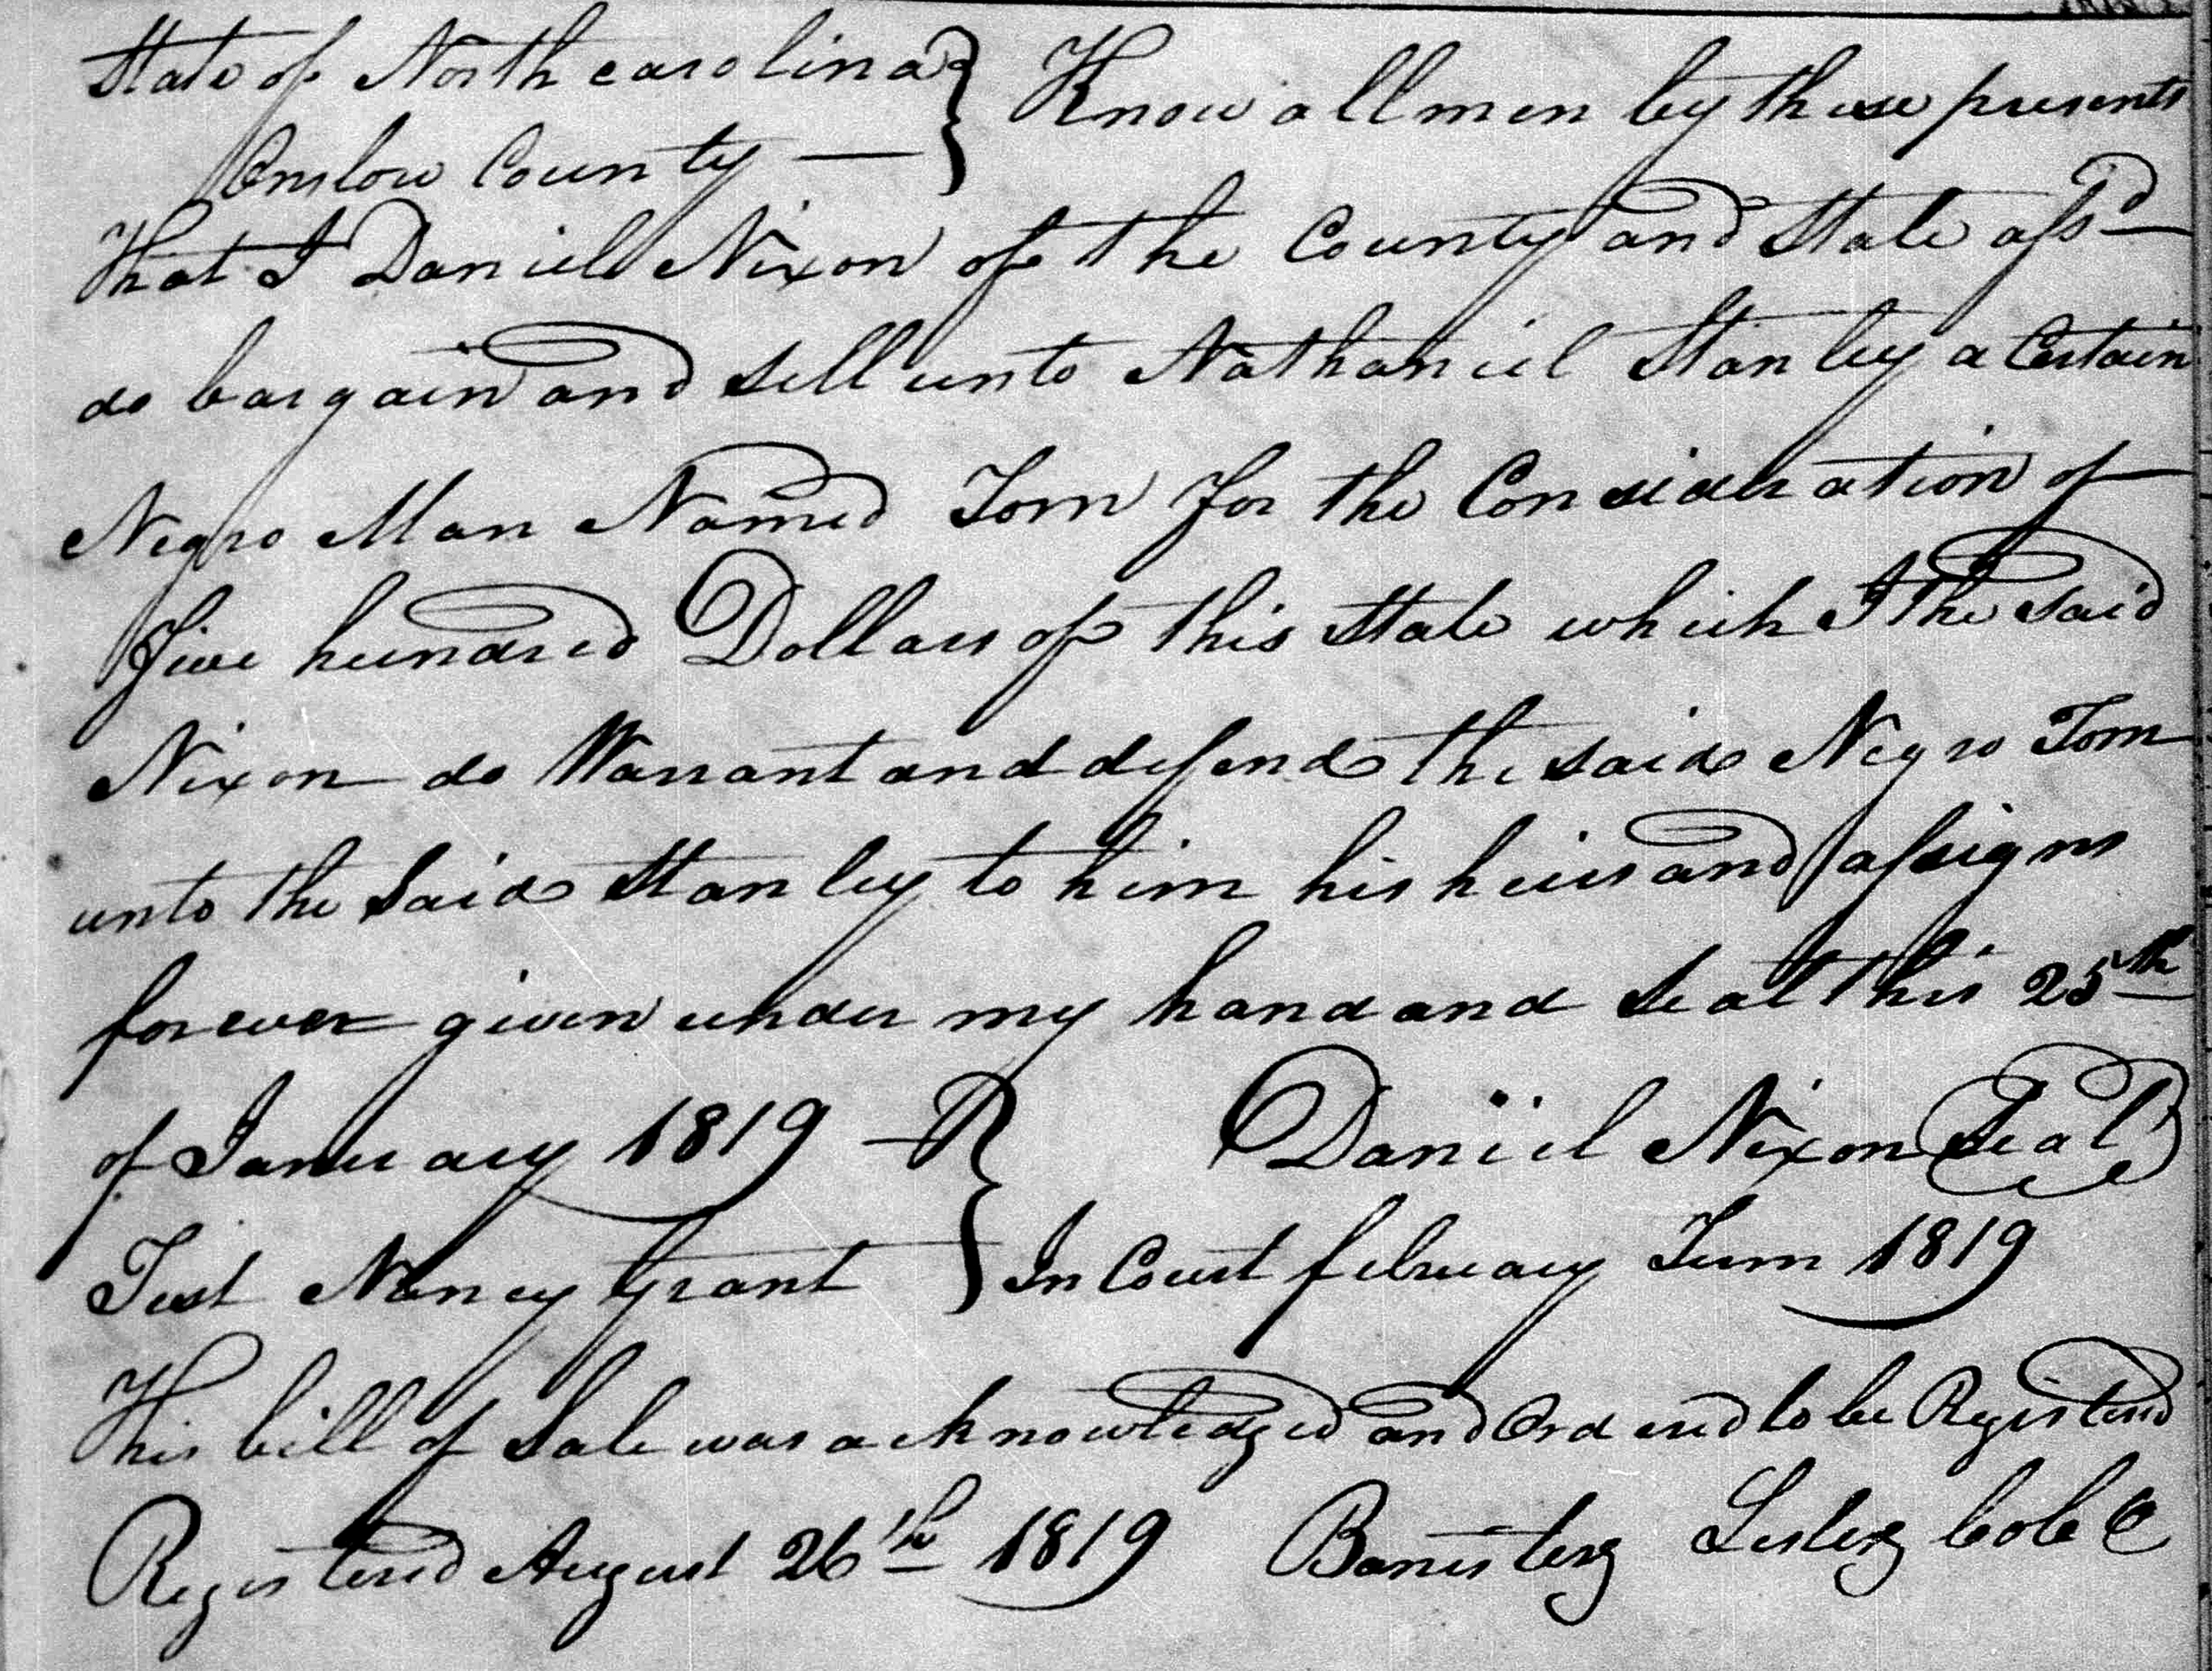 State of North carolina } Know all men by these presents
Onslow County —
That I Daniel Nixon of the County and State afsd
do bargain and sell unto Nathaniel Stanley a Certain
Negro Man Named Tom for the Consideration of
five hundred Dollars of this State which I the said
Nixon do Warrant and defend the said Negro Tom
unto the Said Stanley to him his heirs and assigns
forever given under my hand and Seal this 25th
of January 1819 — } Daniel Nixon Seal
Test Nancy Grant } In Court february Term 1819
This bill of Sale was acknowledged and Ordered to be Registered
Registered August 26th 1819 Banister Lester